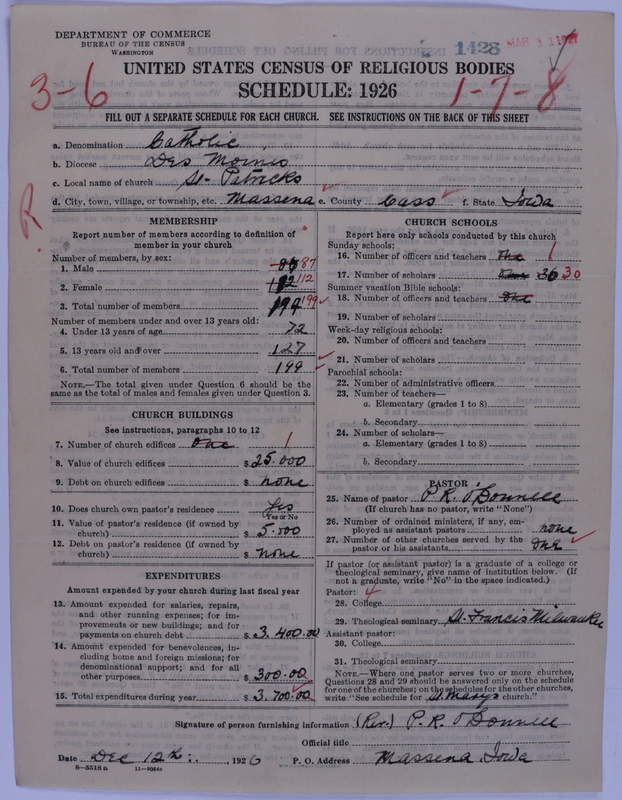 DEPARTMENT OF COMMERCE
BUREAU OF THE CENSUS
WASHINGTON
1428 MAR 11 1927
UNITED STATES CENSUS OF RELIGIOUS BODIES
3-6 SCHEDULE: 1926 1-7-8
FILL OUT A SEPARATE SCHEDULE FOR EACH CHURCH. SEE INSTRUCTIONS ON THE BACK OF THIS SHEET
a. Denomination Catholic
b. Diocese Des Moines
c. Local name of church St. Patricks
d. City, town, village, or township, etc. Massena e. County Cass f. State Iowa
R.
MEMBERSHIP
Report number of members according to definition of
member in your church
Number of members, by sex:
1. Male 87
2. Female 112
3. Total number of members 199
Number of members under and over 13 years old:
4. Under 13 years of age 72
5. 13 years old and over 127
6. Total number of members 199
NOTE.—The total given under Question 6 should be the
same as the total of males and females given under Question 3.
CHURCH BUILDINGS
See instructions, paragraphs 10 to 12
7. Number of church edifices One 1
8. Value of church edifices $ 25.000
9. Debt on church edifices $ none
10. Does church own pastor's residence Yes
Yes or No
11. Value of pastor's residence (if owned by
church) $ 5.500
12. Debt on pastor's residence (if owned by
church) $ none
EXPENDITURES
Amount expended by your church during last fiscal year
13. Amount expended for salaries, repairs,
and other running expenses; for im-
provements or new buildings; and for
payments on church debt $ 3.400.00
14. Amount expended for benevolences, in-
cluding home and foreign missions; for
denominational support; and for all
other purposes $ 300.00
15. Total expenditures during year $ 3.700.00
CHURCH SCHOOLS
Report here only schools conducted by this church
Sunday schools:
16. Number of officers and teachers One 1
17. Number of scholars 30 30
Summer vacation Bible schools:
18. Number of officers and teachers One
19. Number of scholars
Week-day religious schools:
20. Number of officers and teachers
21. Number of scholars
Parochial schools:
22. Number of administrative officers
23. Number of teachers—
a. Elementary (grades 1 to 8)
b. Secondary
24. Number of scholars—
a. Elementary (grades 1 to 8)
b. Secondary
PASTOR
25. Name of pastor P. R. O'Donnell
(If church has no pastor, write "None")
26. Number of ordained ministers, if any, em-
ployed as assistant pastors none
27. Number of other churches served by the
pastor or his assistants One
If pastor (or assistant pastor) is a graduate of a college or
theological seminary, give name of institution below. (If
not a graduate, write "No" in the space indicated.)
Pastor: 4
28. College
29. Theological seminary St. Francis Milwaukee
Assistant pastor:
30. College
31. Theological seminary
NOTE.—Where one pastor serves two or more churches,
Questions 28 and 29 should be answered only on the schedule
for one of the churches; on the schedules for the other churches,
write "See schedule for St. Marys church."
Signature of person furnishing information (Rev.) P. R. O'Donnell
Official title
Date Dec 12th, 1926 P. O. Address Massena Iowa
8—5518a 11—9084